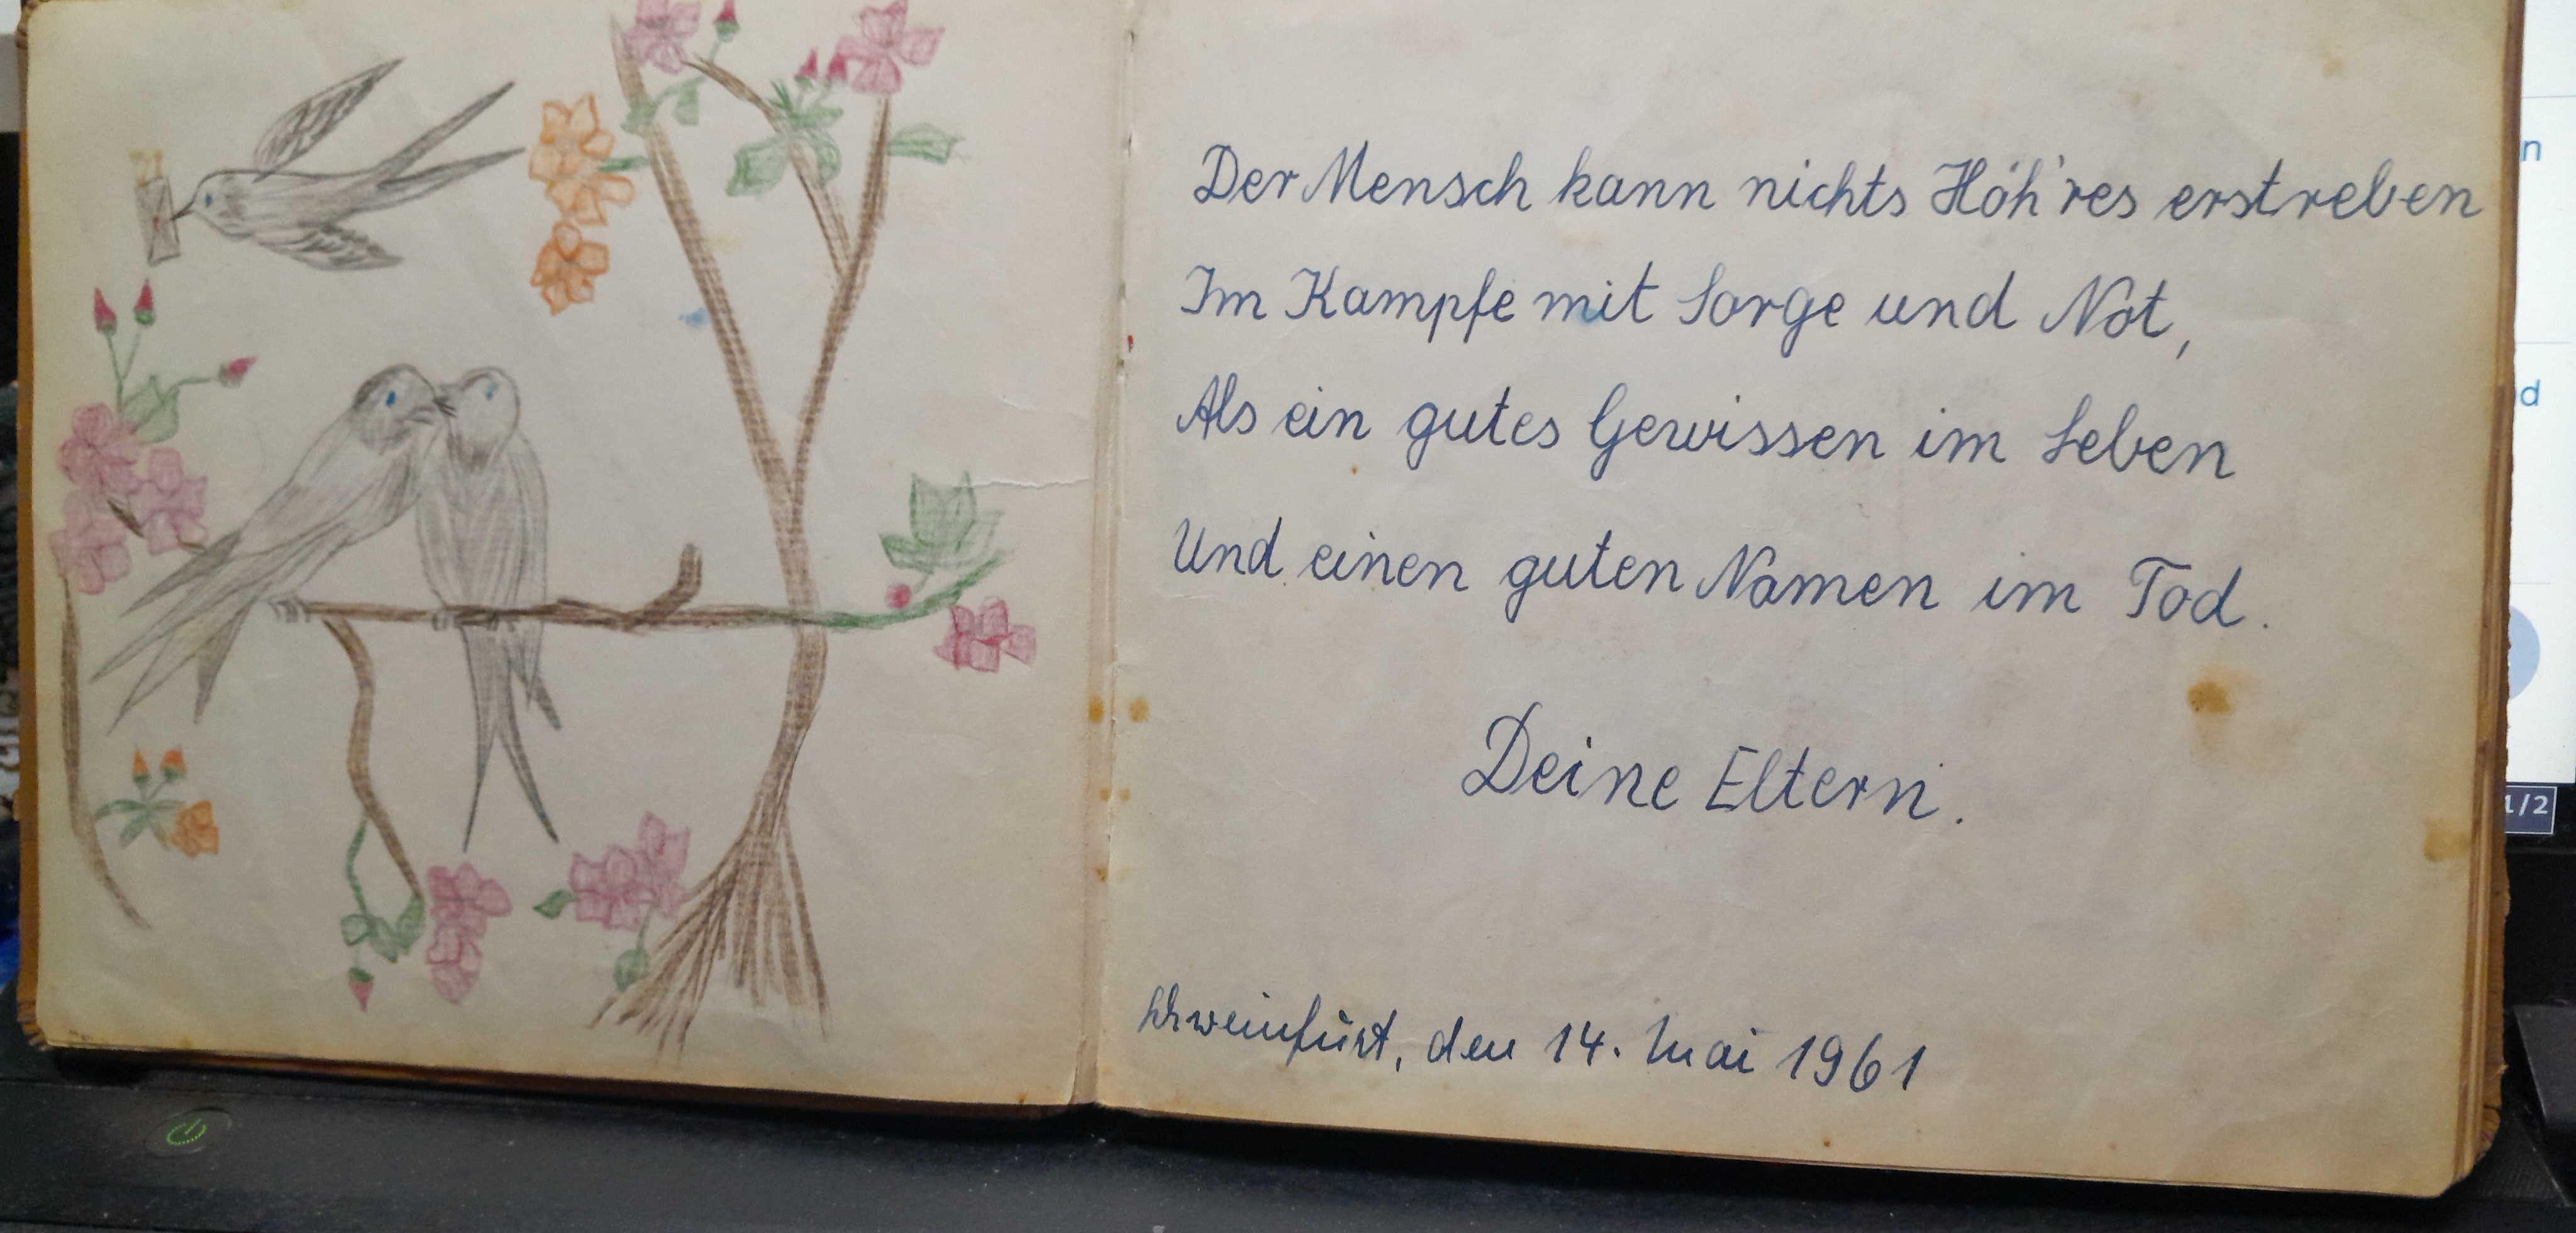 Der Mensch kann nichts Höh'res erstreben
Im Kampfe mit Sorge und Not,
Als ein gutes Gewissen im Leben
Und einen guten Namen im Tod.
Deine Eltern.
Schweinfurt, den 14. Mai 1961
n
d
1/2